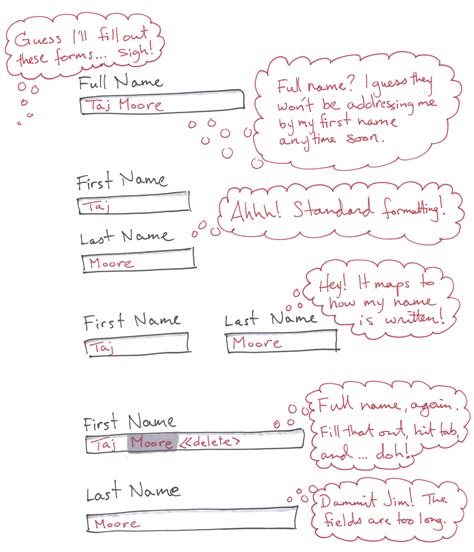 Guess I'll fill out
these forms... sigh!
Full Name
Taj Moore
Full name? I guess they
won't be addressing me
by my first name
anytime soon.
First Name
Taj
Ahhh! Standard formatting!
Last Name
Moore
Hey! It maps to
how my name
is written!
First Name Last Name
Taj Moore
Full name, again.
Fill that out, hit tab,
and... doh!
First Name
Taj Moore <<delete>
Dammit Jim! The
fields are too long.
Last Name
Moore